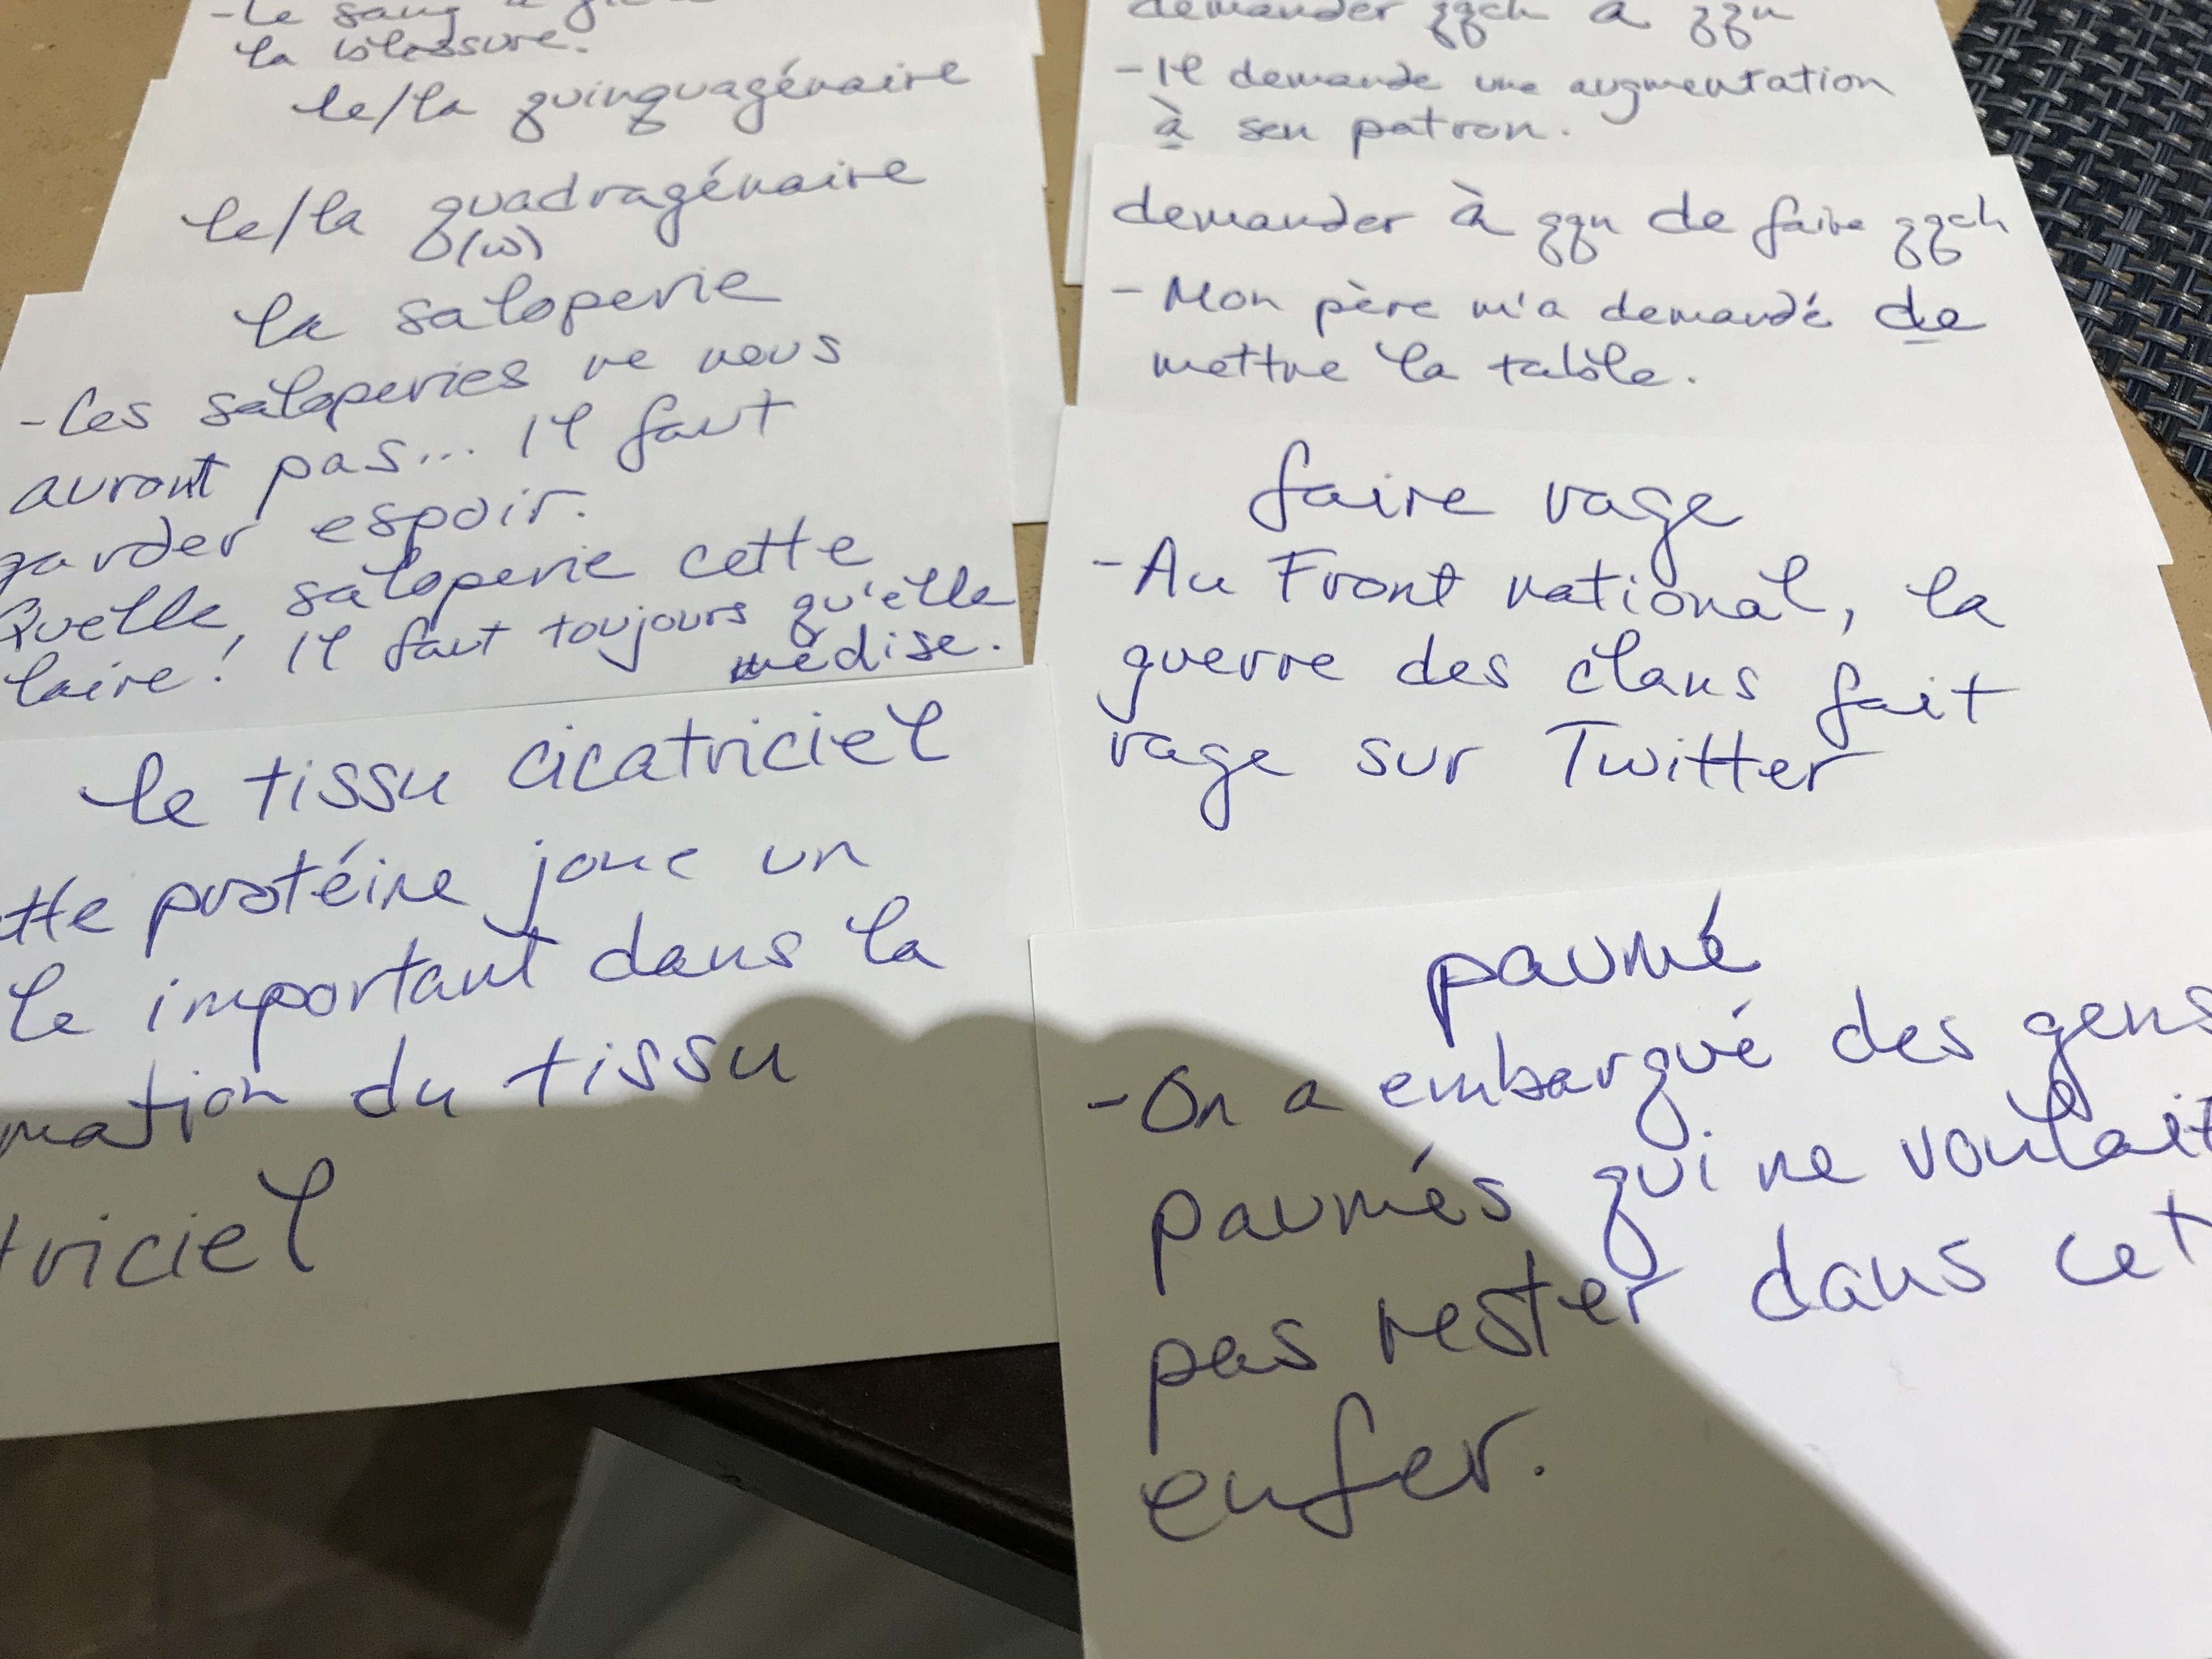 -Le sang a
la blessure.
le/la quinquagénaire
le/la quadragénaire
(w)
la saloperie
-Ces saloperies ne nous
auront pas... Il faut
garder espoir.
Quelle saloperie cette
laire! Il faut toujours qu'elle
médise.
le tissu cicatriciel
tte protéine joue un
le important dans la
mation du tissu
triciel
demander qqch à qqn
-Il demande une augmentation
à son patron.
demander à qqn de faire qqch
-Mon père m'a demandé de
mettre la table.
faire rage
-Au Front national, la
guerre des clans fait
rage sur Twitter
paumé
-On a embarqué des gens
paumés qui ne voulait
pas rester dans cet
enfer.